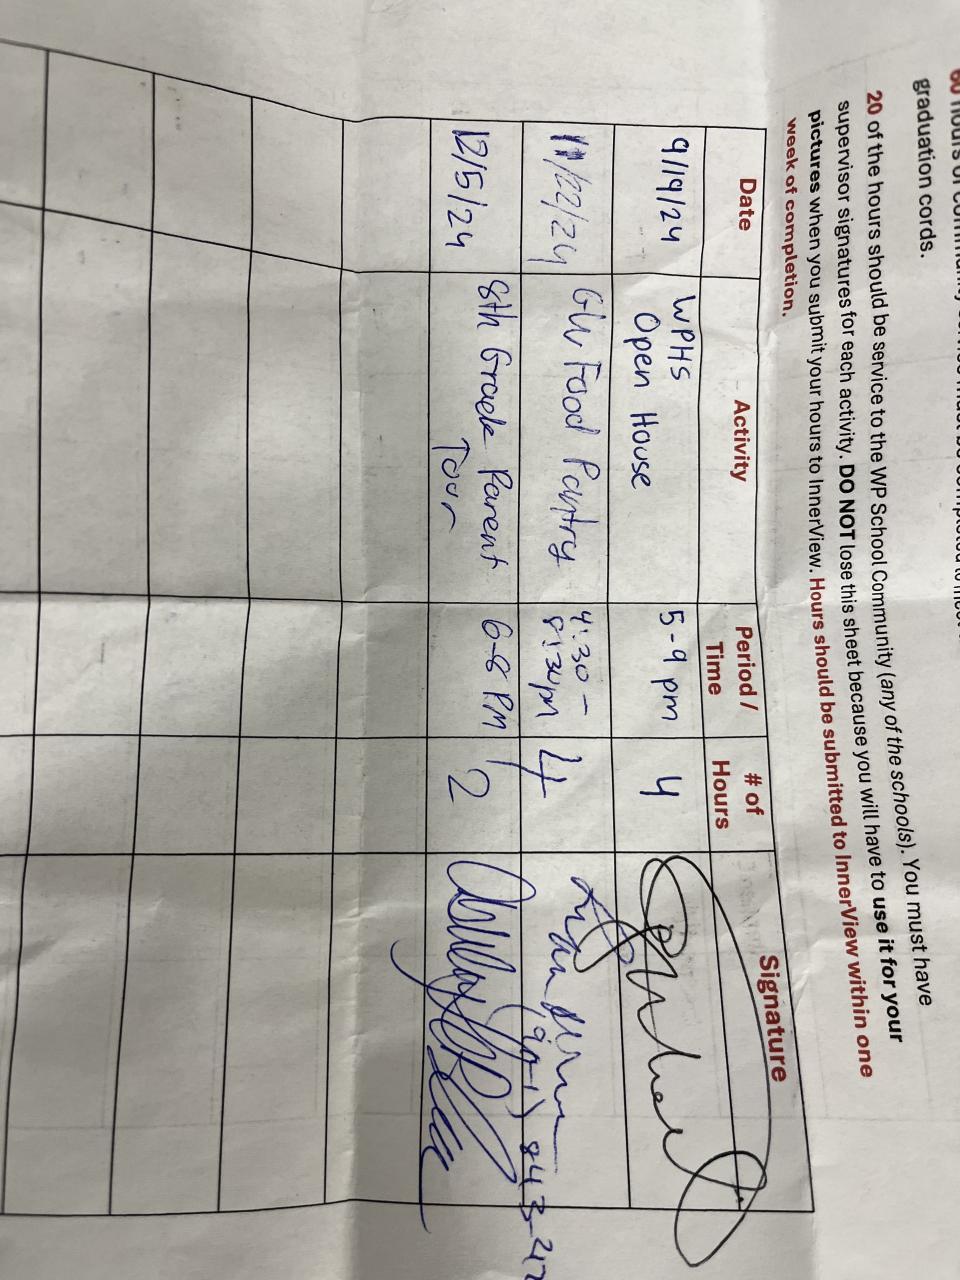 graduation cords.
20 of the hours should be service to the WP School Community (any of the schools). You must have
supervisor signatures for each activity. DO NOT lose this sheet because you will have to use it for your
pictures when you submit your hours to InnerView. Hours should be submitted to InnerView within one
week of completion.
Date Activity Period / Time # of Hours Signature
9/19/24 WPHS Open House 5-9 pm 4
11/22/24 GW Food Pantry 4:30 - 8:30pm 4
12/5/24 8th Grade Parent Tour 6-8 PM 2